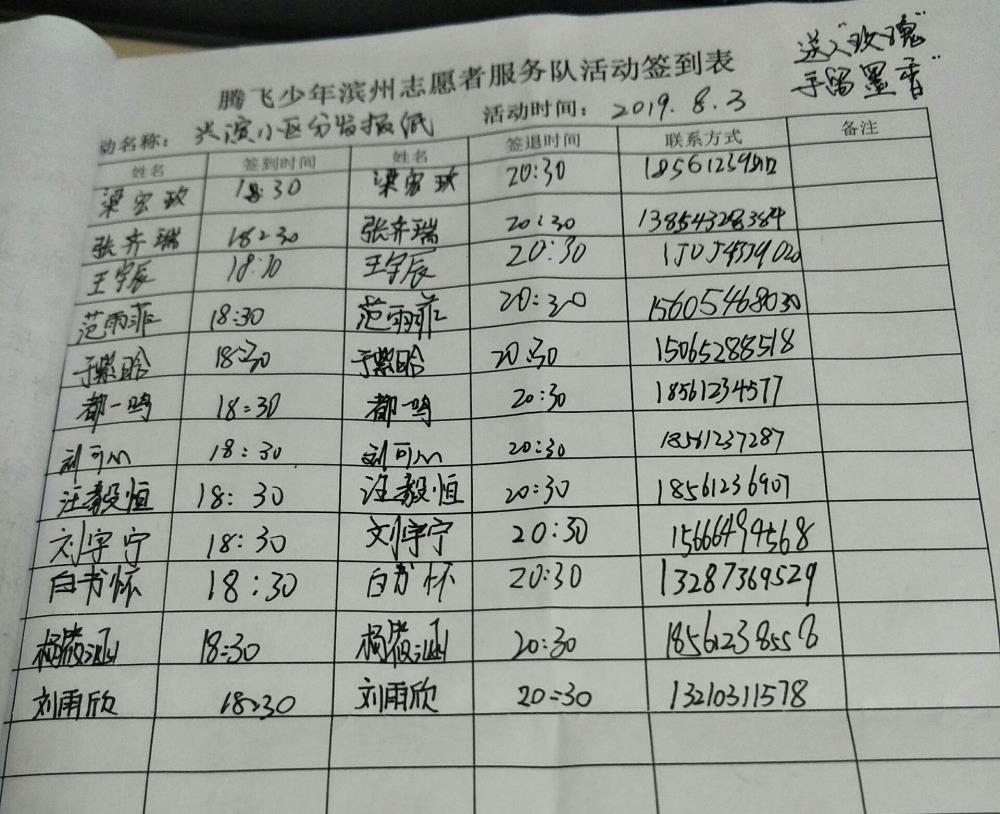 送人"玫瑰"
手留墨香"
腾飞少年滨州志愿者服务队活动签到表
动名称: 兴滨小区分发报纸 活动时间: 2019.8.3
姓名 签到时间 姓名 签退时间 联系方式 备注
梁宏玫 18:30 梁宏玫 20:30
张齐瑞 18:30 张齐瑞 20:30 13854328384
王宇辰 18:30 王宇辰 20:30
范雨菲 18:30 范雨菲 20:30 15605468030
于紫晗 18:30 于紫晗 20:30 15065288518
都一鸣 18:30 都一鸣 20:30 18561234577
刘可心 18:30 刘可心 20:30 18561237287
汪毅恒 18:30 汪毅恒 20:30 18561236907
刘宇宁 18:30 刘宇宁 20:30 15666494568
白书怀 18:30 白书怀 20:30 13287369529
杨筱涵 18:30 杨筱涵 20:30 18561238558
刘雨欣 18:30 刘雨欣 20:30 13210311578